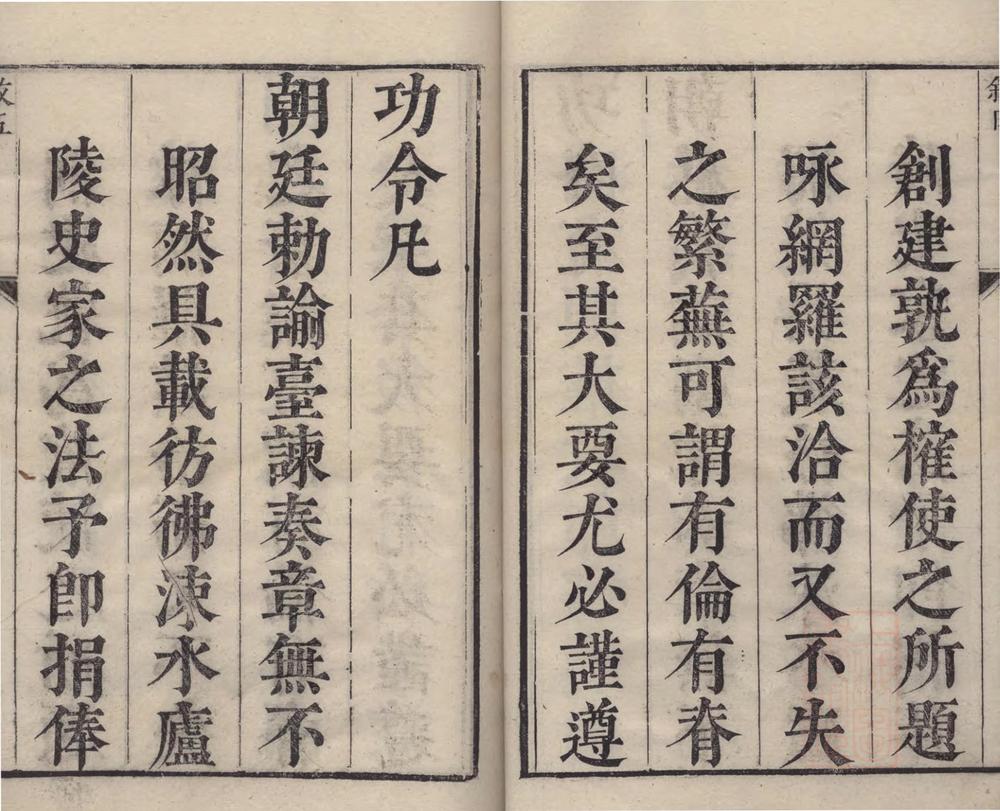 創建孰爲榷使之所題
咏網羅該洽而又不失
之繁蕪可謂有倫有脊
矣至其大要尤必謹遵
功令凡
朝廷勅諭臺諫奏章無不
昭然具載彷彿涑水廬
陵史家之法予卽捐俸